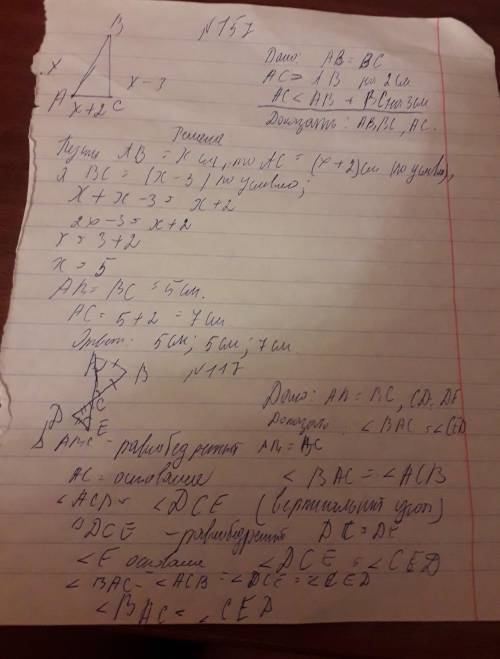 №157
B
x
x-3
A
x+2
C
Дано: AB = BC
AC > AB на 2см
AC < AB + BC на 3см
Доказать: AB, BC, AC.
Решена
Пусть AB = x см, то AC = (x+2)см по условию,
а BC = (x-3) по условию;
x + x - 3 = x+2
2x-3 = x+2
x = 3+2
x = 5
AB = BC = 5см.
AC = 5+2 = 7см
Ответ: 5см; 5см; 7см.
№117
A
B
C
D
E
Дано: AB = BC, CD = DE
Доказать: <BAC = <CED
Δ ABC - равнобедренный AB = BC
AC = основание <BAC = <ACB
<ACB = <DCE (вертикальный угол)
ΔDCE - равнобедренный DC = DE
<E основание <DCE = <CED
<BAC = <ACB = <DCE = <CED
<BAC = <CED